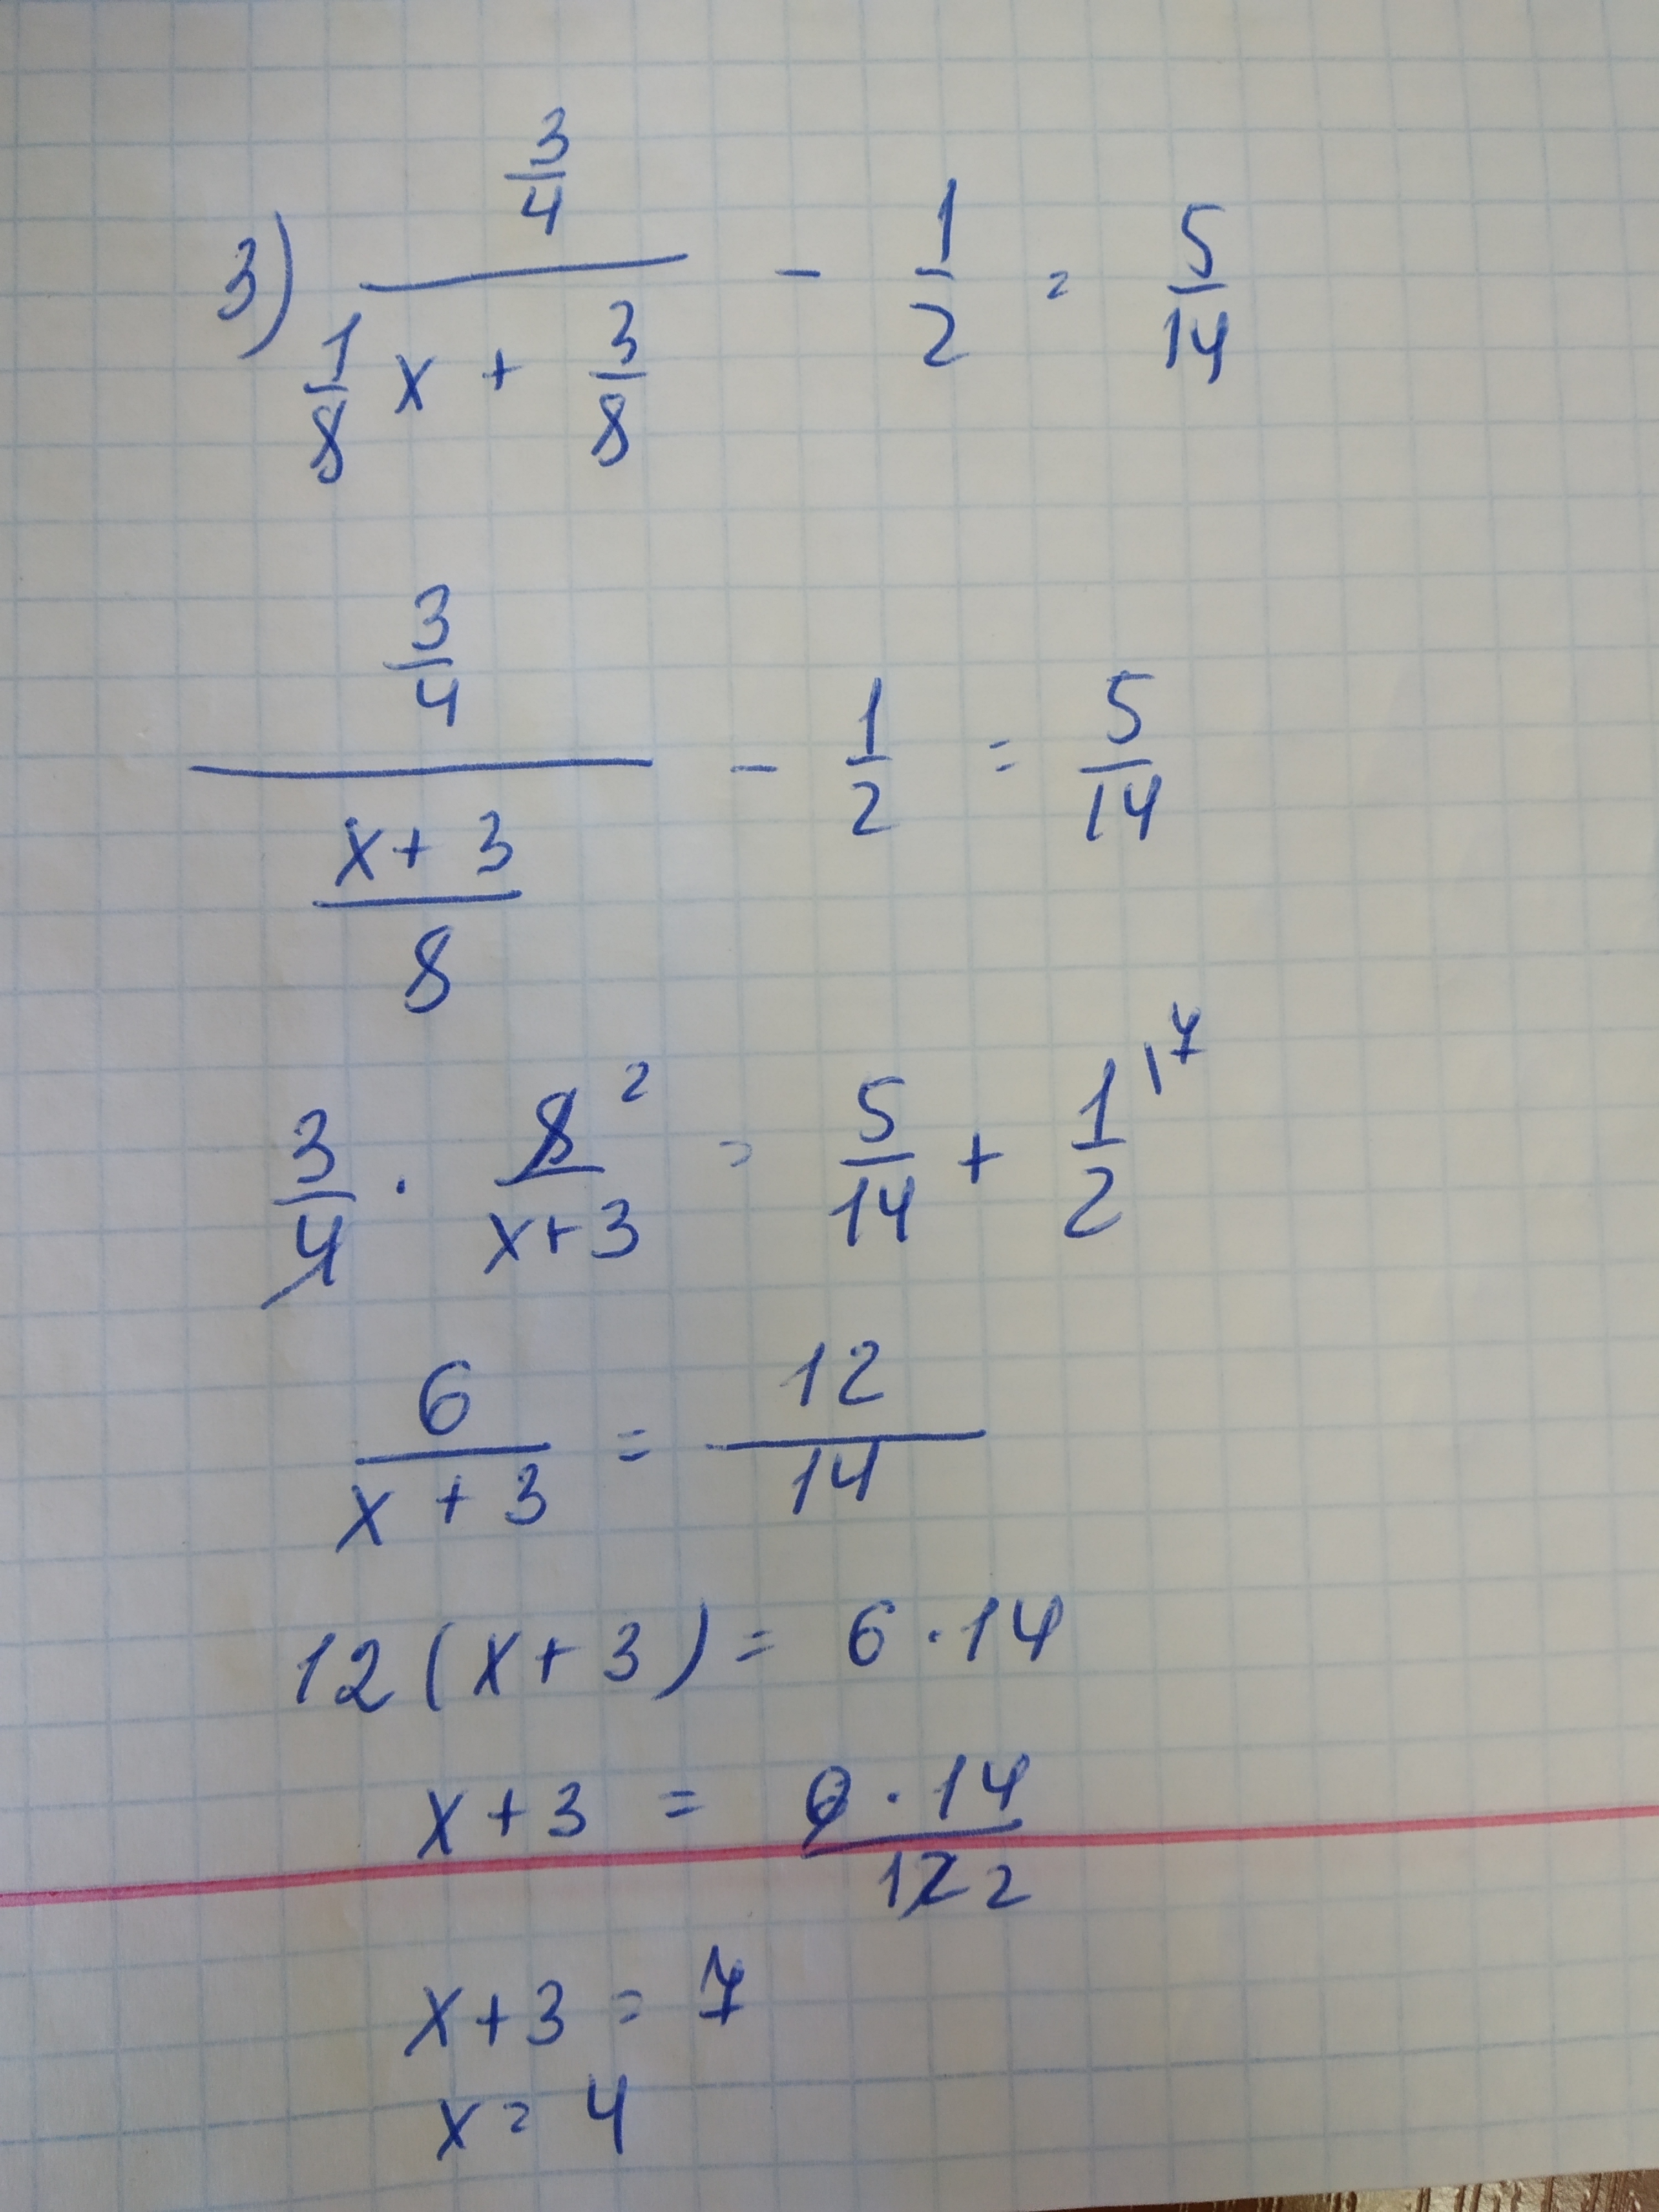 3) (3/4)/(1/8 x + 3/8) - 1/2 = 5/14
(3/4)/((x+3)/8) - 1/2 = 5/14
3/4 · 8²/(x+3) = 5/14 + 1/2 |⁷
6/(x+3) = 12/14
12(x+3) = 6·14
x+3 = 6·14/12 2
x+3 = 7
x = 4